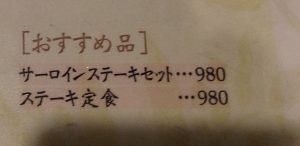 [おすすめ品]
サーロインステーキセット…980
ステーキ定食 …980